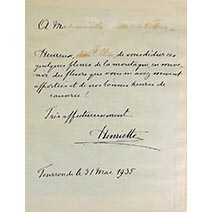 A Mademoiselle
Heureuse, de vous dédier ces
quelques fleurs de la montagne, en souve-
nir des fleurs que vous m'avez souvent
apportées et de nos bonnes heures de
causerie !
Très affectueusement
Henriette
Tourronde le 31 Mai 1935